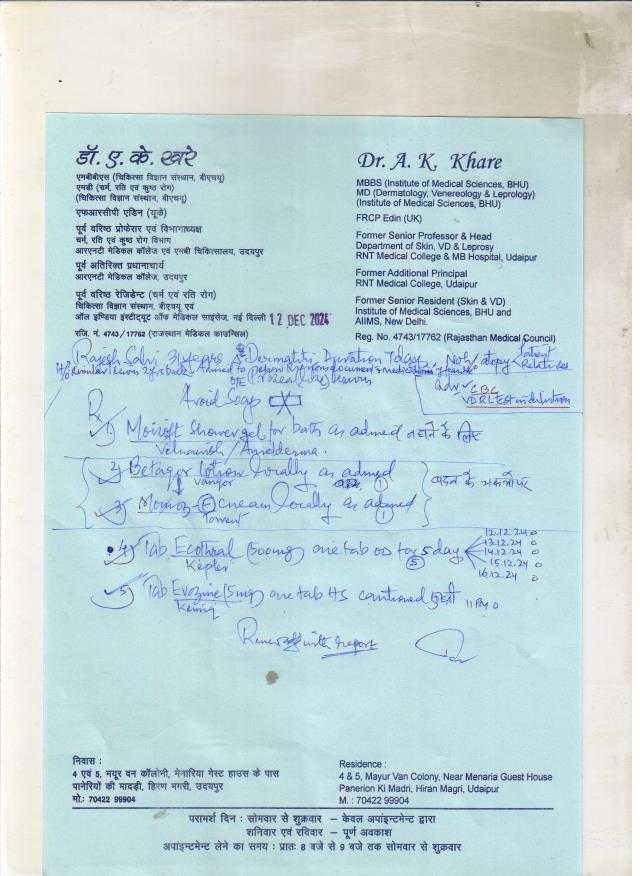 डॉ. ए. के. खरे
एमबीबीएस (चिकित्सा विज्ञान संस्थान, बीएचयू)
एमडी (चर्म, रति एवं कुष्ठ रोग)
(चिकित्सा विज्ञान संस्थान, बीएचयू)
एफआरसीपी एडिन (यूके)
पूर्व वरिष्ठ प्रोफेसर एवं विभागाध्यक्ष
चर्म, रति एवं कुष्ठ रोग विभाग
आरएनटी मेडिकल कॉलेज एवं एमबी चिकित्सालय, उदयपुर
पूर्व अतिरिक्त प्रधानाचार्य
आरएनटी मेडिकल कॉलेज, उदयपुर
पूर्व वरिष्ठ रेजिडेन्ट (चर्म एवं रति रोग)
चिकित्सा विज्ञान संस्थान, बीएचयू एवं
ऑल इण्डिया इंस्टीट्यूट ऑफ मेडिकल साइंसेज, नई दिल्ली
रजि. नं. 4743/17762 (राजस्थान मेडिकल काउन्सिल)
Dr. A. K. Khare
MBBS (Institute of Medical Sciences, BHU)
MD (Dermatology, Venereology & Leprology)
(Institute of Medical Sciences, BHU)
FRCP Edin (UK)
Former Senior Professor & Head
Department of Skin, VD & Leprosy
RNT Medical College & MB Hospital, Udaipur
Former Additional Principal
RNT Medical College, Udaipur
Former Senior Resident (Skin & VD)
Institute of Medical Sciences, BHU and
AIIMS, New Delhi.
Reg. No. 4743/17762 (Rajasthan Medical Council)
12 DEC 2024
Rajesh Salvi 31 years Dermatitis Duration 7 day No h/o atopy Patient Relatives
Adv CBC
VDRL test in dilution
Avoid Soap
Rx
1) Moisoft Shower gel for bath as advised नहाने के लिए
2) Betagor lotion locally as advised
3) Momoz-F cream locally as advised
Torrent
4) Tab Ecothral (500mg) one tab OD for 5 day
Kepler
12.12.24
13.12.24
14.12.24
15.12.24
16.12.24
5) Tab Evozine (5mg) one tab HS 11 PM
Review with report
निवास :
4 एवं 5, मयूर वन कॉलोनी, मेनारिया गेस्ट हाउस के पास
पानेरियों की मादड़ी, हिरण मगरी, उदयपुर
मो.: 70422 99904
Residence :
4 & 5, Mayur Van Colony, Near Menaria Guest House
Panerion Ki Madri, Hiran Magri, Udaipur
M. : 70422 99904
परामर्श दिन : सोमवार से शुक्रवार – केवल अपांइन्टमेन्ट द्वारा
शनिवार एवं रविवार – पूर्ण अवकाश
अपांइन्टमेन्ट लेने का समय : प्रातः 8 बजे से 9 बजे तक सोमवार से शुक्रवार